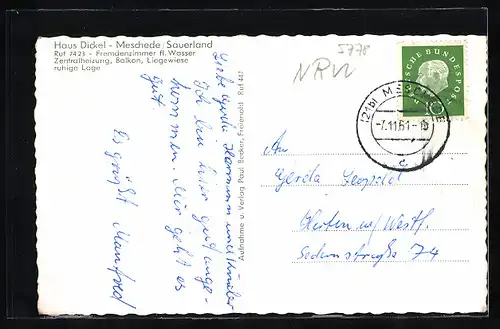 Haus Dickel - Meschede/Sauerland
Ruf 7423 - Fremdenzimmer fl. Wasser
Zentralheizung, Balkon, Liegewiese
ruhige Lage
5778
NRW
DEUTSCHE BUNDESPOST
10
(21b) MESCHEDE
-7.11.61-
c
Liebe Gerda, Hermann und Kinder
Ich bin hier gut ange-
kommen. Mir geht es
gut.
Es grüßt Manfred
Aufnahme u. Verlag Paul Becker, Freienohl Ruf 447
An
Gerda Leopold
Herten i/Westf.
Sedanstraße 74